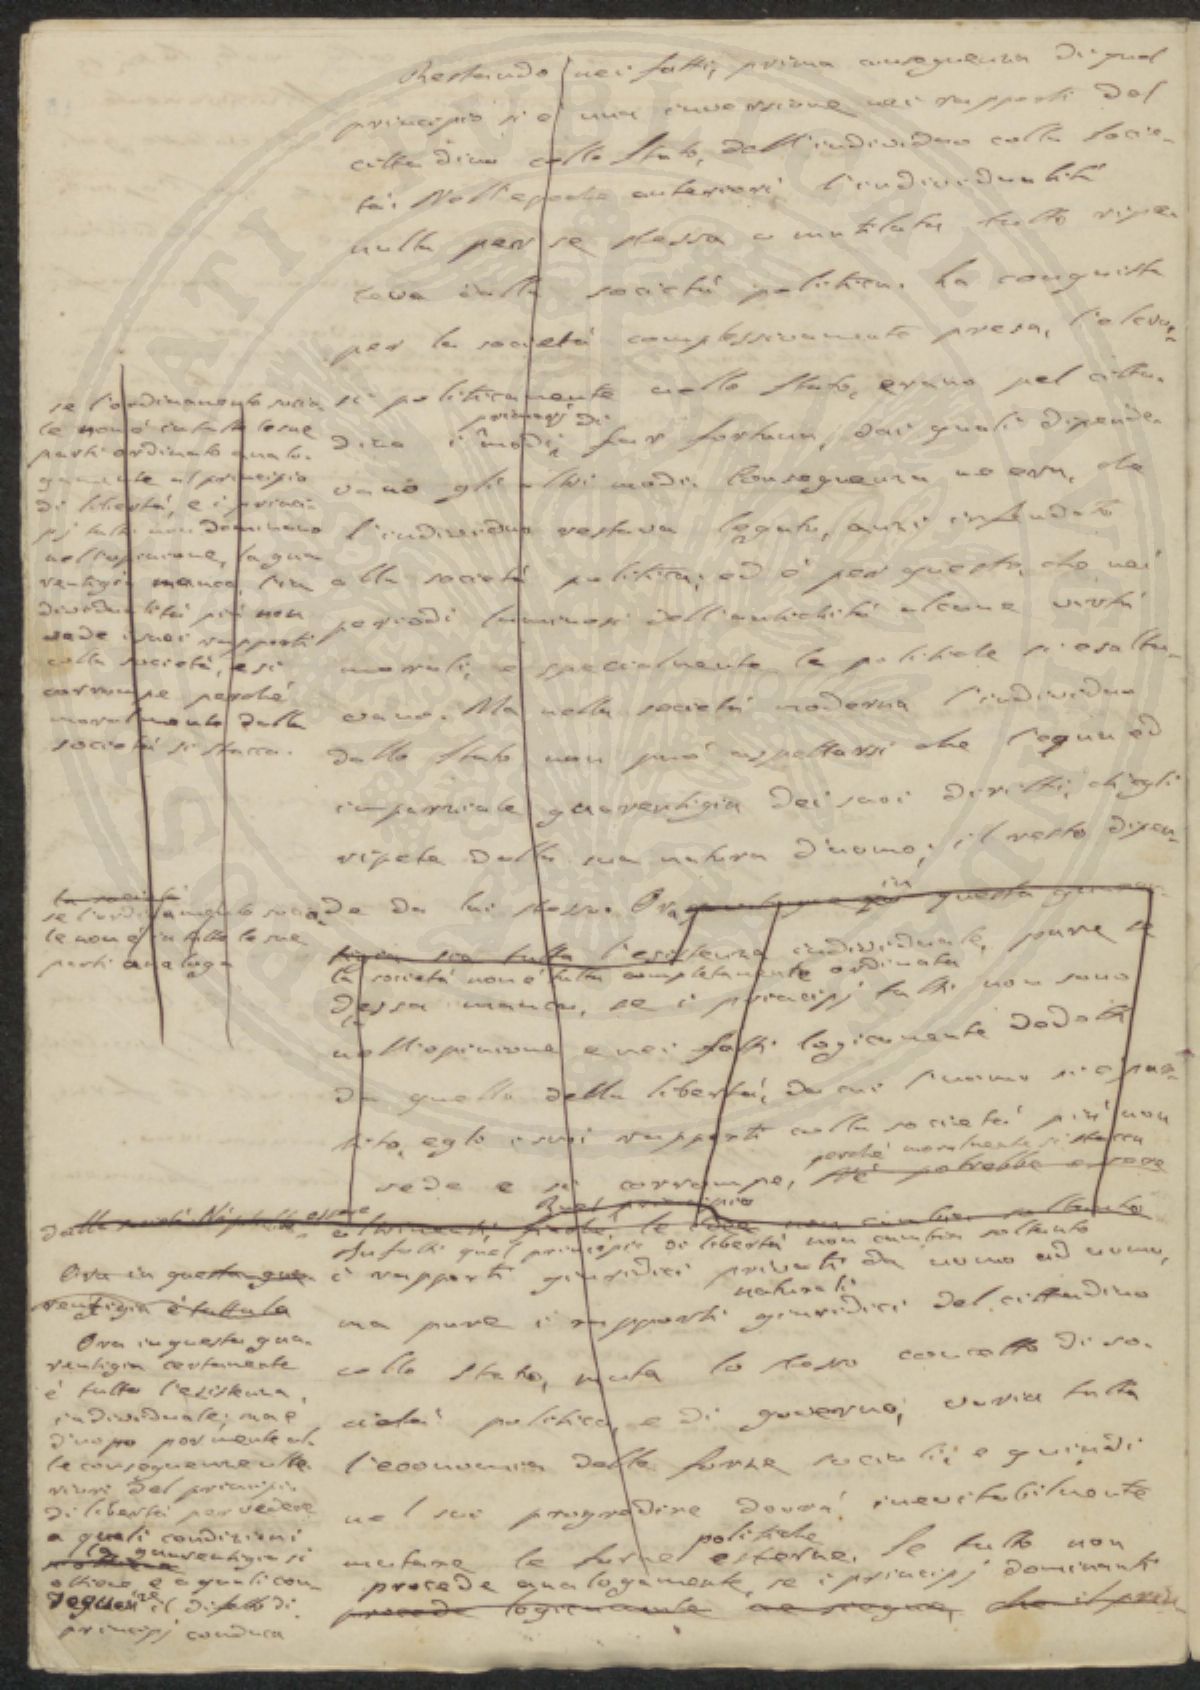 Restando nei fatti, prima conseguenza di quel
principio si è una inversione nei rapporti del
cittadino collo Stato, dell'individuo colla Socie-
tà. Nell'epoche anteriori l'individualità
nulla per se stessa o mutilata tutto ripe-
teva dalla società politica. La conquista
per la società complessivamente presa, l'elevar-
si politicamente nello Stato, erano pel citta-
primarj di
dino i modi far fortuna, dai quali dipende-
vano gli altri modi. Conseguenza ne era, che
l'individuo restava legato, anzi infeudato
alla società politica; ed è per questo, che nei
periodi luminosi dell'antichità alcune virtù
morali, e specialmente le politiche si esalta-
vano. Ma nella società moderna l'individuo
dallo Stato non può aspettarsi che l'equa ed
imparziale guarentigia dei suoi diritti, ch'egli
ripete dalla sua natura d'uomo; il resto dipen-
de da lui stesso. Ora in questa
sia tutta l'esistenza individuale, pure se
la società non è tutta completamente ordinata
dessa manca, se i principj tutti non sono
nell'opinione e nei fatti logicamente dedotti
da quello della libertà, da cui l'uomo si è par-
tito, egli i suoi rapporti colla società più non
perchè moralmente si stacca
vede e si corrompe. Nè potrebbe essere
Quel principio
altrimenti, non cambia soltanto
Infatti quel principio di libertà non cambia soltanto
i rapporti giuridici privati da uomo ad uomo,
naturali
ma pure i rapporti giuridici del cittadino
collo Stato, muta lo stesso concetto di so-
cietà politica, e di governo, varia tutta
l'economia delle forze sociali, e quindi
nel suo progredire dovrà inevitabilmente
politiche
mutare le forme esterne. Se tutto non
procede analogamente, se i principj dominanti
procede logicamente ne siegue, che il prin-
se l'ordinamento socia-
le non è in tutte le sue
parti ordinato analo-
gamente al principio
di libertà, e i princi-
pj tutti non dominano
nell'opinione, la gua-
rentigia manca, l'in-
dividualità più non
vede i suoi rapporti
colla società, e si
corrompe perchè
moralmente dalla
società si stacca.
la società
se l'ordinamento socia-
le non è in tutte le sue
parti analogo
Ora in questa gua-
rentigia è tutta la
Ora in questa gua-
rentigia certamente
è tutta l'esistenza
individuale; ma è
d'uopo por mente al-
le conseguenze ulte-
riori del principio
di libertà per vedere
a quali condizioni
la guarentigia si
ottiene, e a quali con-
seguenze il difetto di
principj conduca